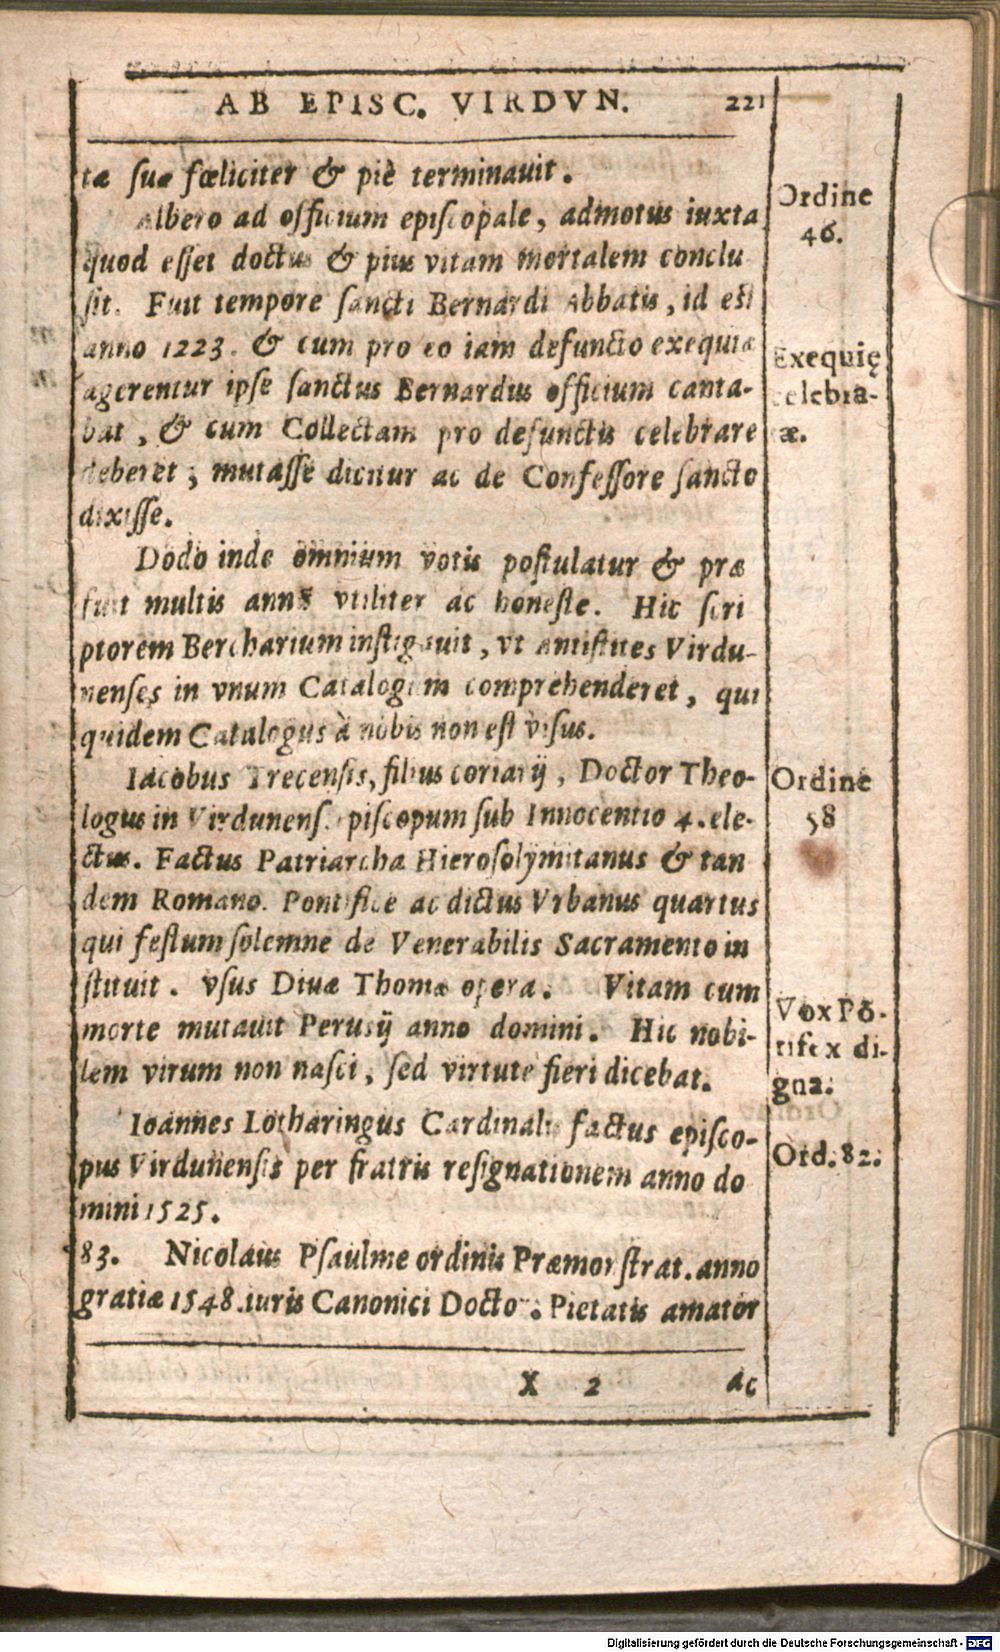 AB EPISC. VIRDVN. 221
tæ suæ fœliciter & piè terminauit.
Albero ad officium episcopale, admotus iuxta
quod esset doctus & pius vitam mortalem conclu
sit. Fuit tempore sancti Bernardi Abbatis, id est
anno 1223. & cum pro eo iam defuncto exequiæ
agerentur ipse sanctus Bernardus officium canta-
bat, & cum Collectam pro defunctis celebrare
deberet; mutasse dicitur ac de Confessore sancto
dixisse.
Dodo inde omnium votis postulatur & præ
fuit multis annis vtiliter ac honeste. Hic scri
ptorem Bercharium instigauit, vt antistites Virdu-
nenses in vnum Catalogum comprehenderet, qui
quidem Catalogus à nobis non est visus.
Iacobus Trecensis, filius coriarij, Doctor Theo-
logus in Virdunens. episcopum sub Innocentio 4. ele-
ctus. Factus Patriarcha Hierosolymitanus & tan
dem Romano. Pontifice ac dictus Vrbanus quartus
qui festum solemne de Venerabilis Sacramento in
stituit. vsus Diuæ Thomæ opera. Vitam cum
morte mutauit Perusij anno domini. Hic nobi-
lem virum non nasci, sed virtute fieri dicebat.
Ioannes Lotharingus Cardinalis factus episco-
pus Virdunensis per fratris resignationem anno do
mini 1525.
83. Nicolaus Psaulme ordinis Præmonstrat. anno
gratiæ 1548. iuris Canonici Doctor. Pietatis amator
X 2 ac
Ordine
46.
Exequię
celebra-
æ.
Ordine
58
Vox Põ-
tifex di-
gna.
Ord. 82.
Digitalisierung gefördert durch die Deutsche Forschungsgemeinschaft - DFG